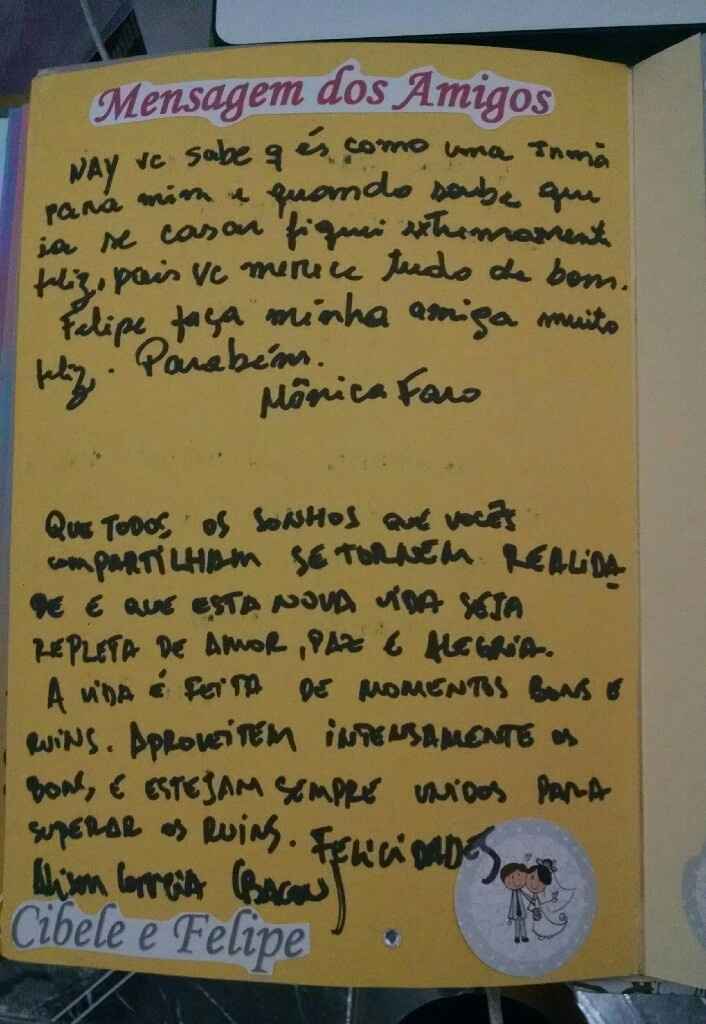 Mensagem dos Amigos
NAY vc sabe q és como uma Irmã
para mim e quando soube que
ia se casar fiquei extremamente
feliz, pois vc merece tudo de bom.
Felipe faça minha amiga muito
feliz. Parabéns.
Mônica Faro
QUE TODOS OS SONHOS QUE VOCÊS
COMPARTILHAM SE TORNEM REALIDA
DE E QUE ESTA NOVA VIDA SEJA
REPLETA DE AMOR, PAZ E ALEGRIA.
A VIDA É FEITA DE MOMENTOS BONS E
RUINS. APROVEITEM INTENSAMENTE OS
BONS, E ESTEJAM SEMPRE UNIDOS PARA
SUPERAR OS RUINS. FELICIDADES
Alison Correia (BACON)
Cibele e Felipe